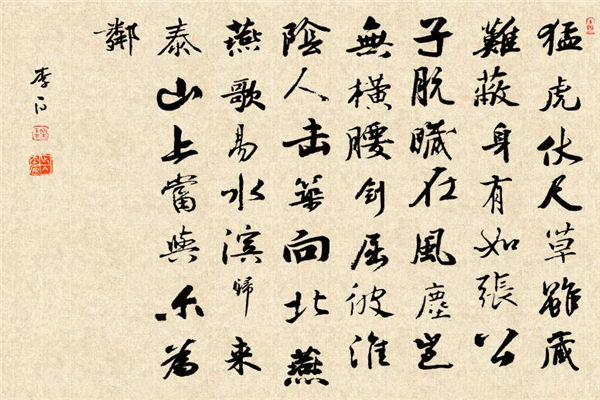 猛虎伏尺草雖藏
難蔽身有如張公
子脱臟在風塵豈
無橫腰剑屈彼淮
陰人击筑向北燕
燕歌易水滨歸来
泰山上當與尔為
鄰
李